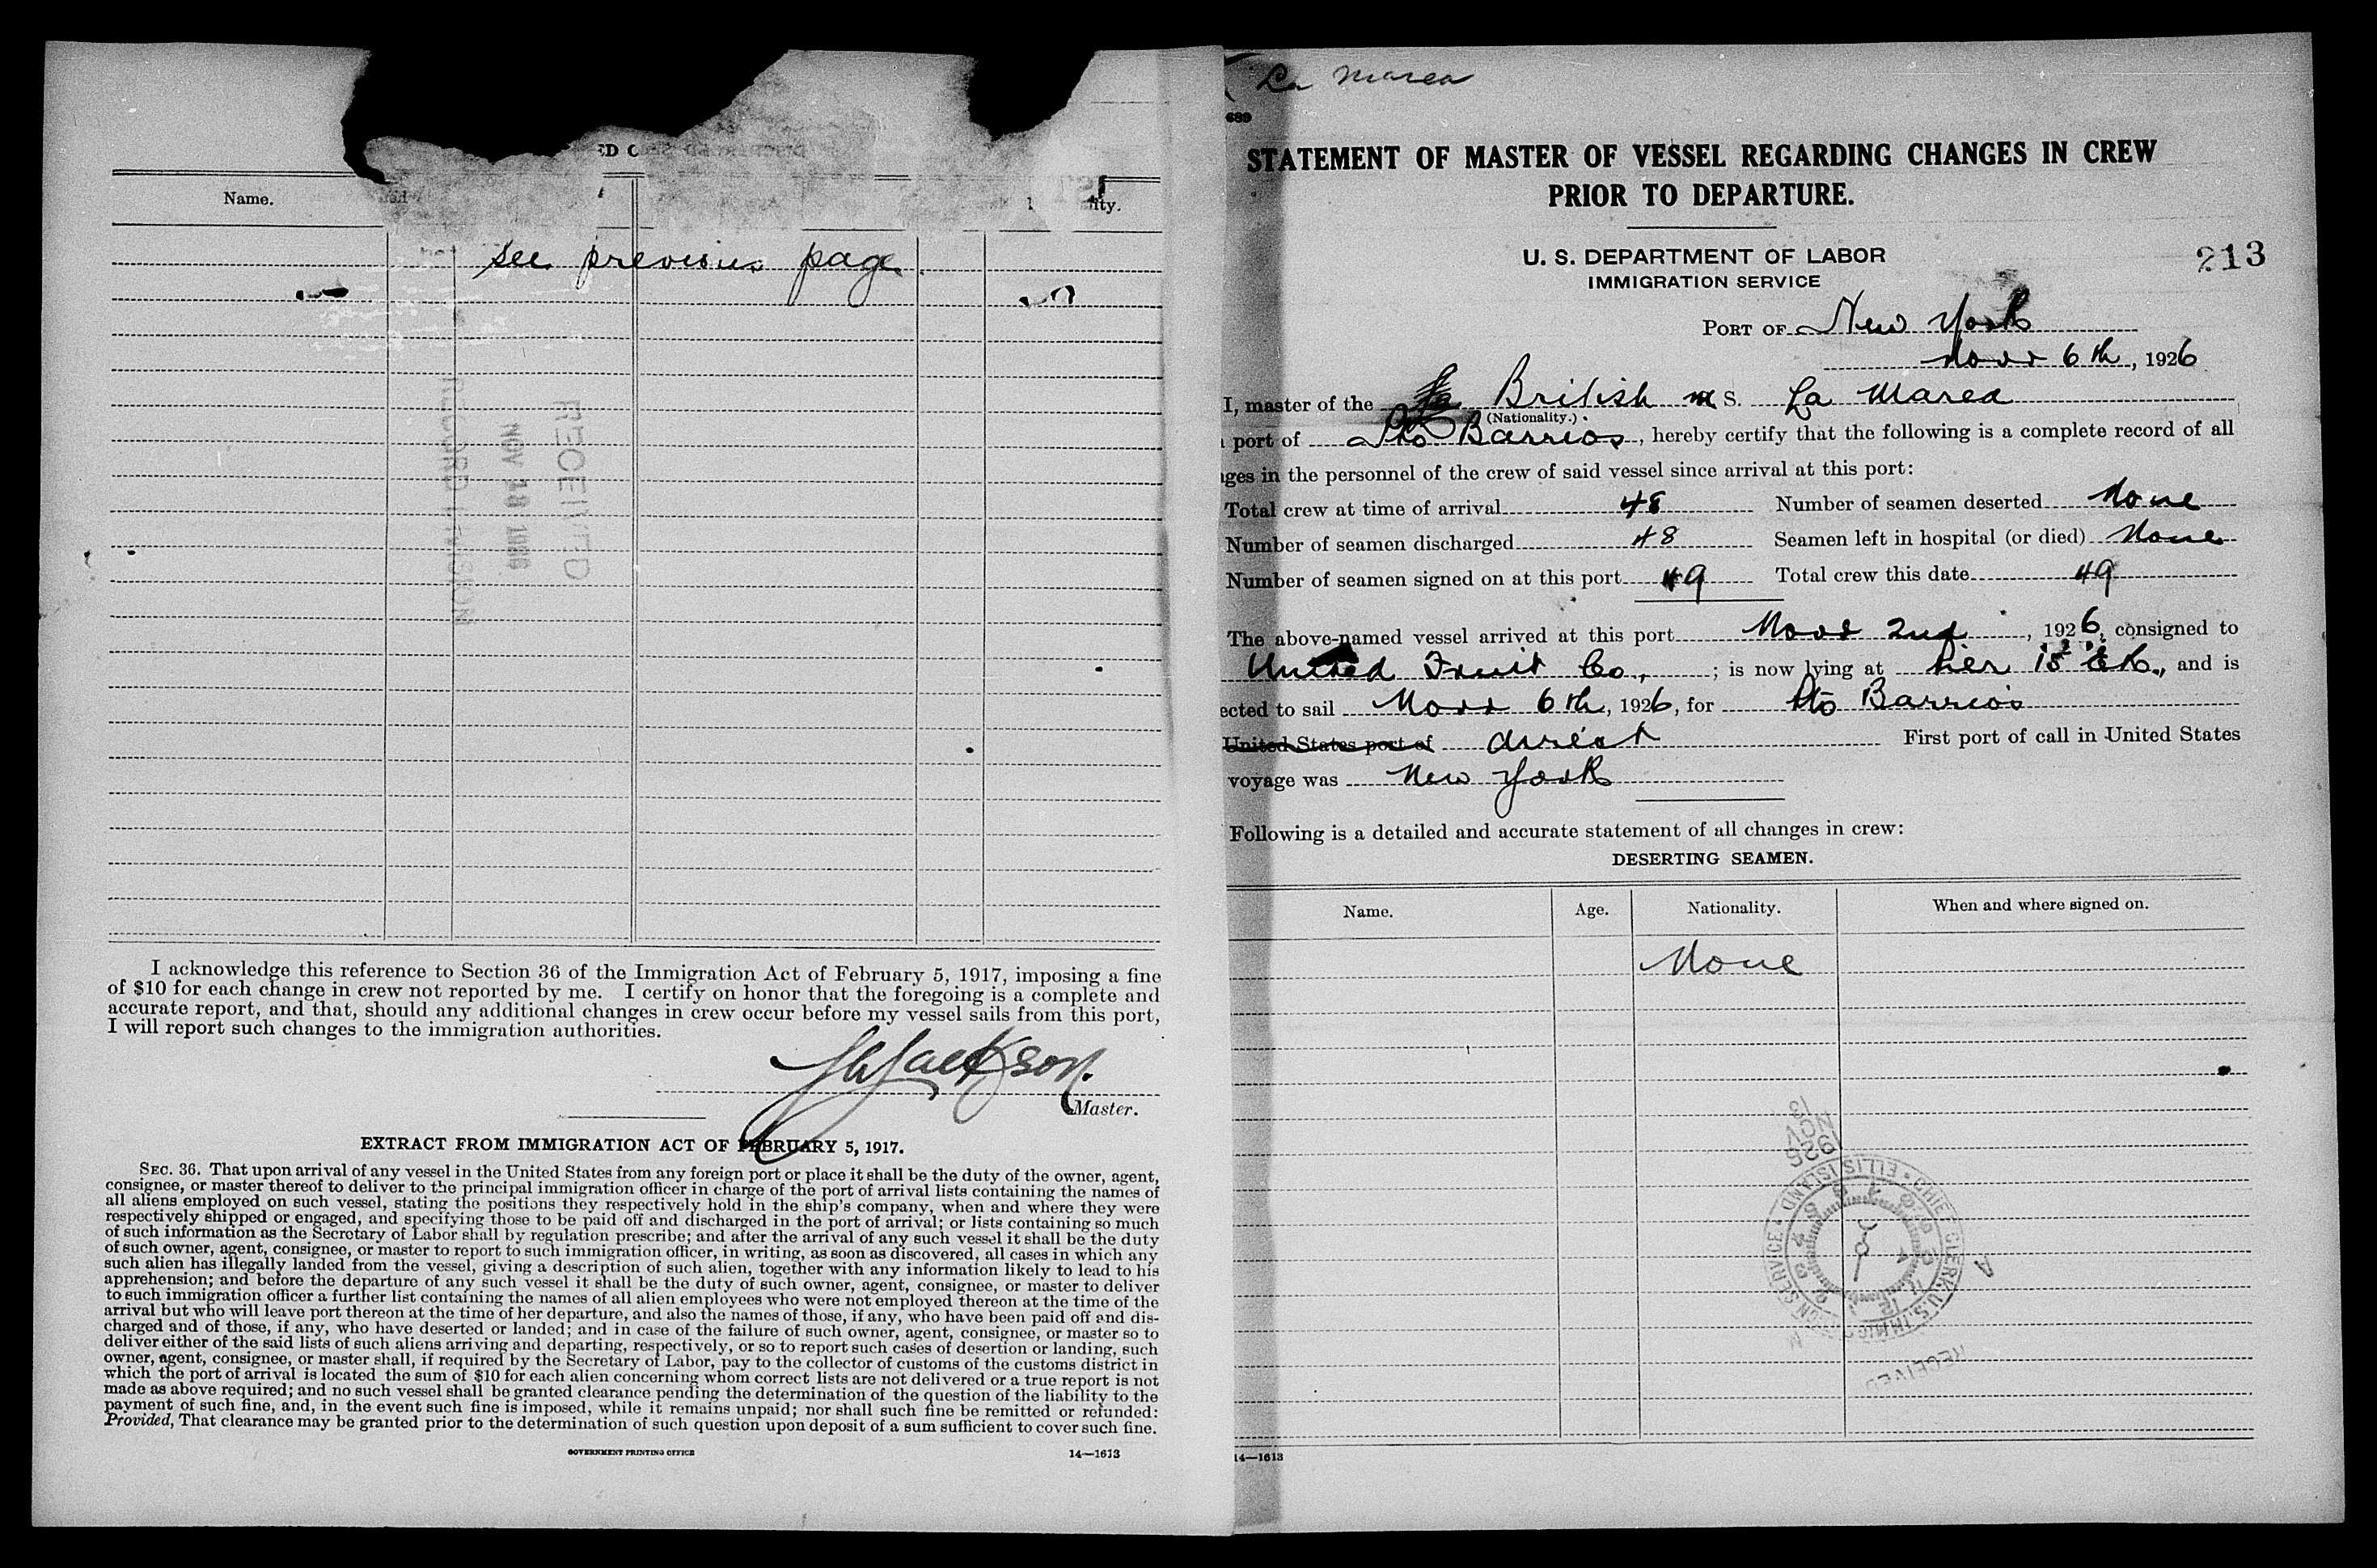 ED
Name.
ity.
see previous page
RECEIVED
NOV 18 1926
RECORD DIVISION
I acknowledge this reference to Section 36 of the Immigration Act of February 5, 1917, imposing a fine
of $10 for each change in crew not reported by me. I certify on honor that the foregoing is a complete and
accurate report, and that, should any additional changes in crew occur before my vessel sails from this port,
I will report such changes to the immigration authorities.
Jackson.
Master.
EXTRACT FROM IMMIGRATION ACT OF FEBRUARY 5, 1917.
SEC. 36. That upon arrival of any vessel in the United States from any foreign port or place it shall be the duty of the owner, agent,
consignee, or master thereof to deliver to the principal immigration officer in charge of the port of arrival lists containing the names of
all aliens employed on such vessel, stating the positions they respectively hold in the ship's company, when and where they were
respectively shipped or engaged, and specifying those to be paid off and discharged in the port of arrival; or lists containing so much
of such information as the Secretary of Labor shall by regulation prescribe; and after the arrival of any such vessel it shall be the duty
of such owner, agent, consignee, or master to report to such immigration officer, in writing, as soon as discovered, all cases in which any
such alien has illegally landed from the vessel, giving a description of such alien, together with any information likely to lead to his
apprehension; and before the departure of any such vessel it shall be the duty of such owner, agent, consignee, or master to deliver
to such immigration officer a further list containing the names of all alien employees who were not employed thereon at the time of the
arrival but who will leave port thereon at the time of her departure, and also the names of those, if any, who have been paid off and dis-
charged and of those, if any, who have deserted or landed; and in case of the failure of such owner, agent, consignee, or master so to
deliver either of the said lists of such aliens arriving and departing, respectively, or so to report such cases of desertion or landing, such
owner, agent, consignee, or master shall, if required by the Secretary of Labor, pay to the collector of customs of the customs district in
which the port of arrival is located the sum of $10 for each alien concerning whom correct lists are not delivered or a true report is not
made as above required; and no such vessel shall be granted clearance pending the determination of the question of the liability to the
payment of such fine, and, in the event such fine is imposed, while it remains unpaid; nor shall such fine be remitted or refunded:
Provided, That clearance may be granted prior to the determination of such question upon deposit of a sum sufficient to cover such fine.
GOVERNMENT PRINTING OFFICE
14—1613
La Marea
689
STATEMENT OF MASTER OF VESSEL REGARDING CHANGES IN CREW
PRIOR TO DEPARTURE.
U. S. DEPARTMENT OF LABOR
213
IMMIGRATION SERVICE
PORT OF New York
Novr 6th, 1926
I, master of the British m S. La Marea
(Nationality.)
port of Pto Barrios, hereby certify that the following is a complete record of all
ges in the personnel of the crew of said vessel since arrival at this port:
Total crew at time of arrival 48 Number of seamen deserted None
Number of seamen discharged 48 Seamen left in hospital (or died) None
Number of seamen signed on at this port 49 Total crew this date 49
The above-named vessel arrived at this port Novr 2nd, 1926, consigned to
United Fruit Co, ; is now lying at Pier 15 E.R., and is
ected to sail Novr 6th, 1926, for Pto Barrios
United States port of direct First port of call in United States
voyage was New York
Following is a detailed and accurate statement of all changes in crew:
DESERTING SEAMEN.
Name. Age. Nationality. When and where signed on.
None
1926
NOV
13
CHIEF CLERK, U.S. IMMIGRATION SERVICE • ELLIS ISLAND •
RECEIVED
14—1613